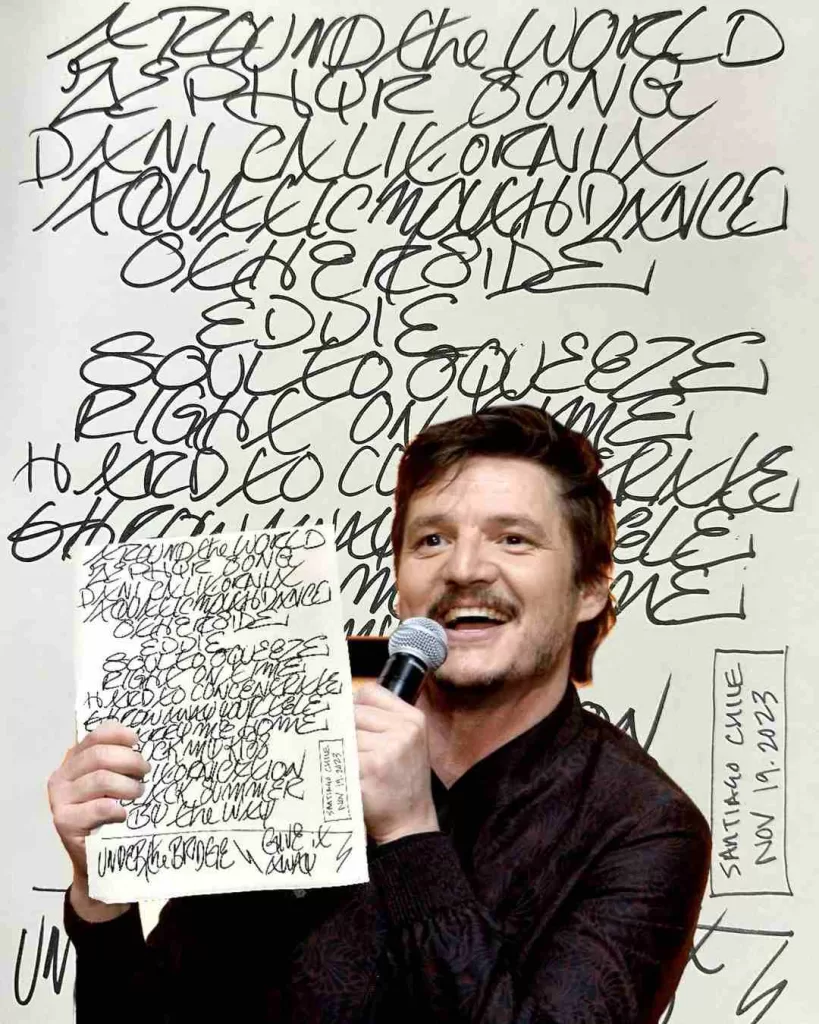 AROUND the WORLD
ZEPHYR SONG
DANI CALIFORNIA
AQUATIC MOUTH DANCE
OTHERSIDE
EDDIE
SOUL TO SQUEEZE
RIGHT ON IME
HARD TO CO RATE
ELE
ME
ON
SANTIAGO CHILE
NOV 19.2023
UN
AROUND the WORLD
ZEPHYR SONG
DANI CALIFORNIA
AQUATIC MOUTH DANCE
OTHERSIDE
EDDIE
SOUL TO SQUEEZE
RIGHT ON TIME
HARD TO CONCENTRATE
THROW AWAY YOUR TELE
ME HOME
UCK MY KISS
LIFORNICATION
ACK SUMMER
BY the WAY
SANTIAGO CHILE
NOV 19.2023
UNDER the BRIDGE \ GIVE it AWAY